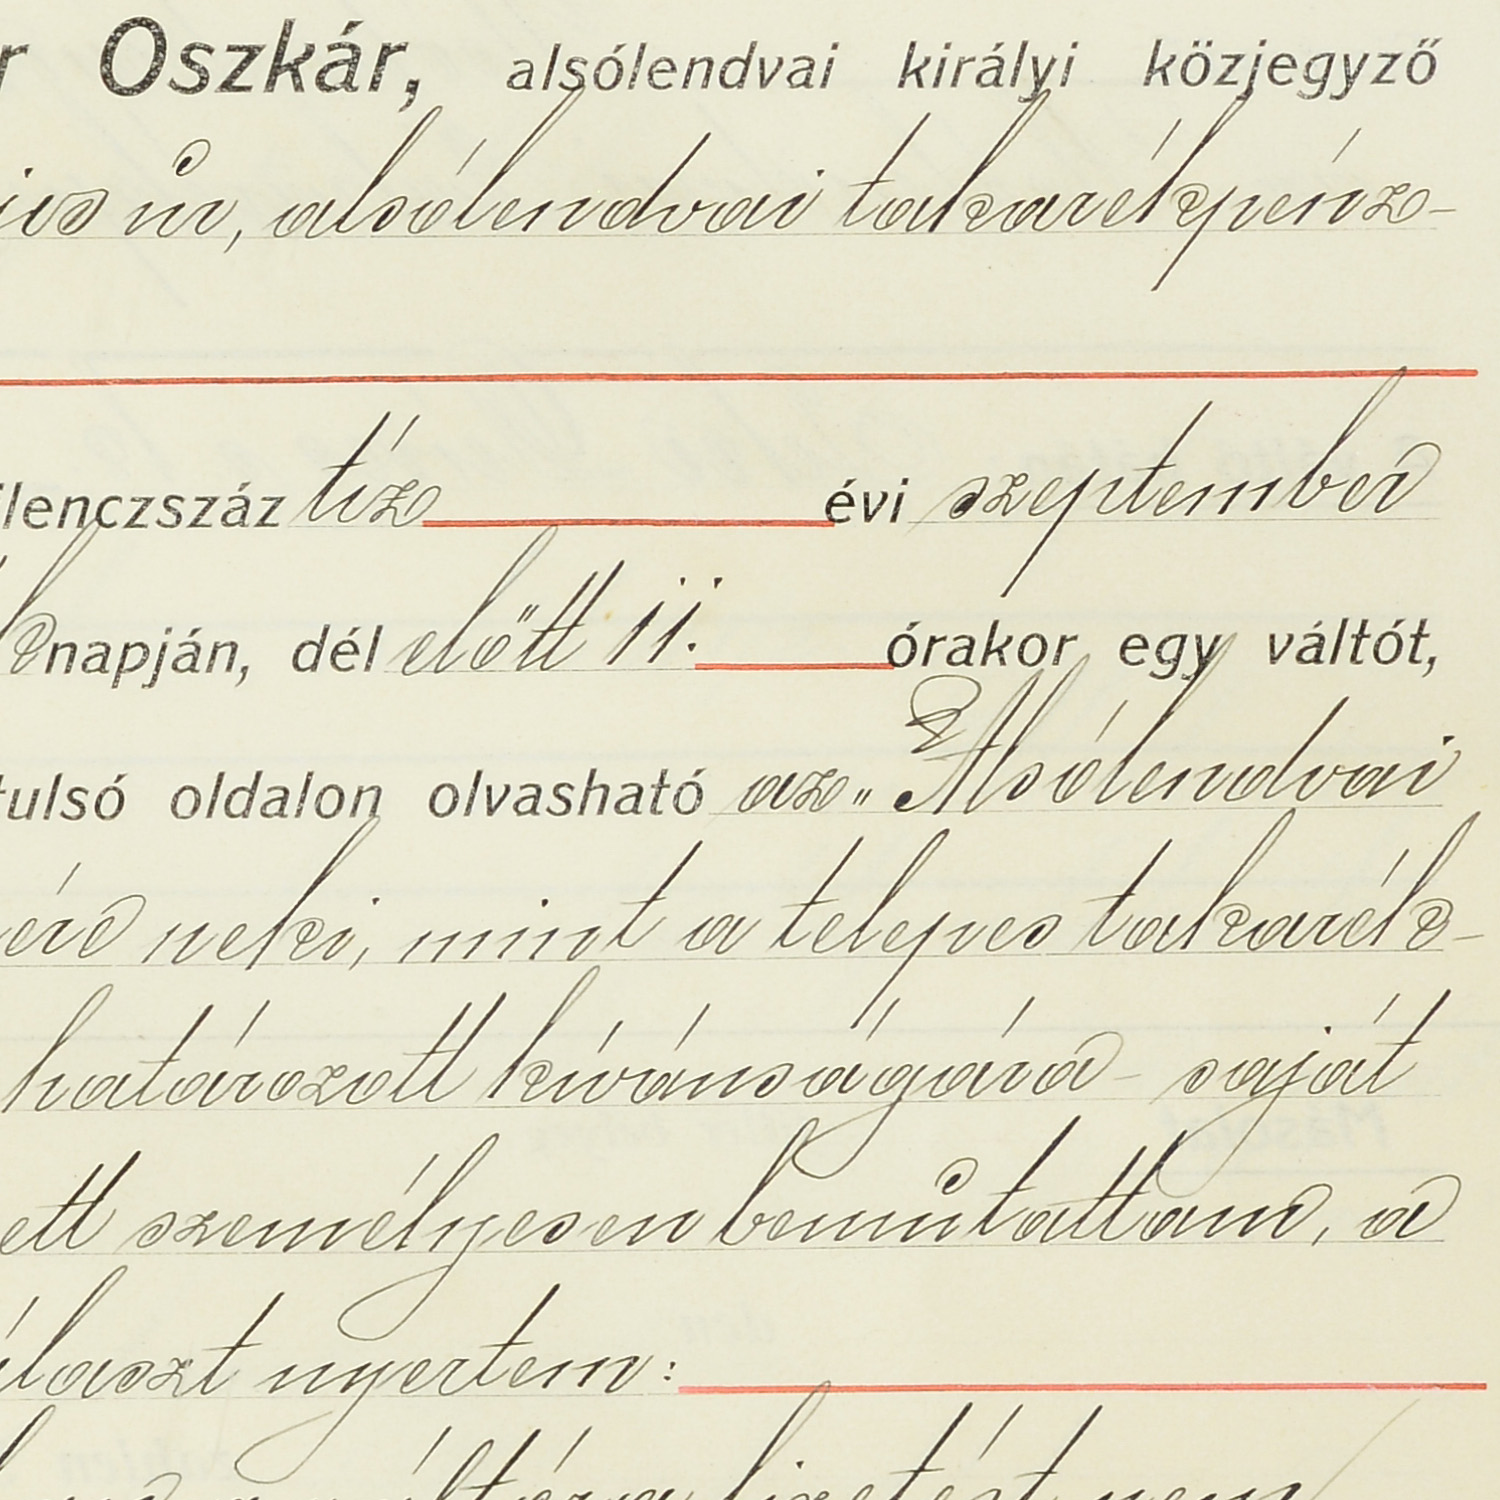 r Oszkár, alsólendvai királyi közjegyző
ius úr, alsólendvai takarékpénz-
ilenczszáz tíz évi szeptember
napján, dél előtt 11. órakor egy váltót,
tulsó oldalon olvasható az „Alsólendvai
ért neki, mint a telepes takarék-
határozott kívánságára - saját
ett személyesen bemutattam, a
álaszt nyertem:
váltóra fizetést nem